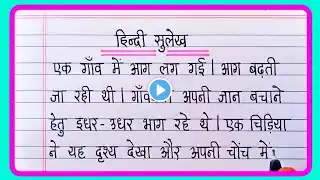 हिन्दी सुलेख
एक गाँव में आग लग गई। आग बढ़ती
जा रही थी। अपनी जान बचाने
हेतु इधर-उधर भाग रहे थे। एक चिड़िया
ने यह दृश्य देखा और अपनी चोंच में